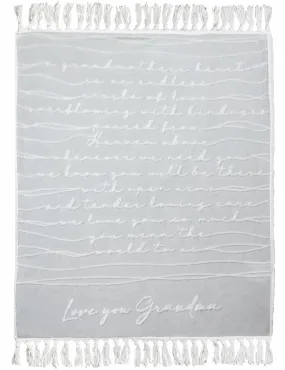 a grandmothers heart
is an endless
source of love
overflowing with kindness
poured from
Heaven above
whenever we need you
we know you will be there
with open arms
and tender loving care
we love you so much
you mean the
world to us
Love you Grandma